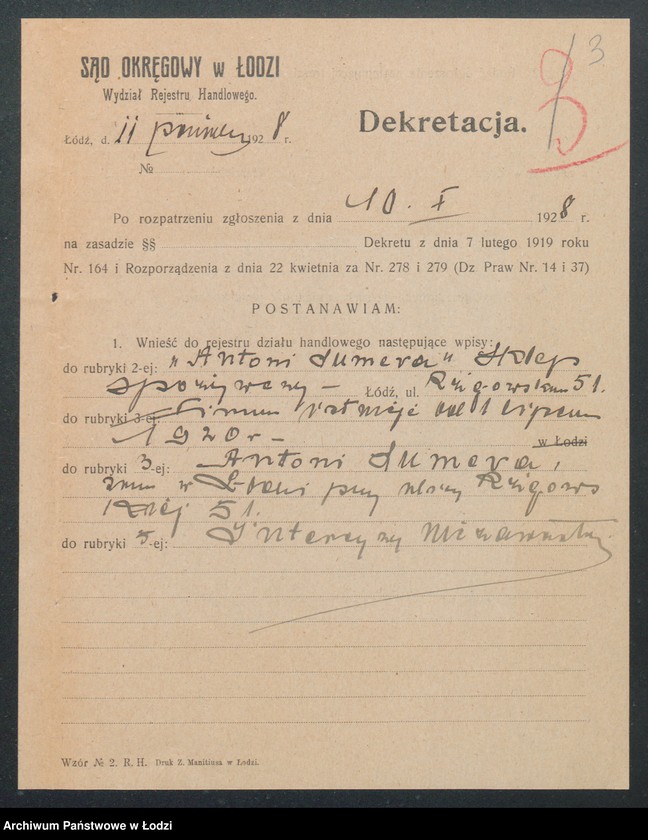 3
SĄD OKRĘGOWY w ŁODZI
Wydział Rejestru Handlowego.
Dekretacja.
Łódź, d. 11 1928 r.
№
Po rozpatrzeniu zgłoszenia z dnia 10. X 1928 r.
na zasadzie §§ Dekretu z dnia 7 lutego 1919 roku
Nr. 164 i Rozporządzenia z dnia 22 kwietnia za Nr. 278 i 279 (Dz Praw Nr. 14 i 37)
POSTANAWIAM:
1. Wnieść do rejestru działu handlowego następujące wpisy:
do rubryki 2-ej: "Antoni Sumera" sklep
spożywczy – Łódź, ul. Rzgowska 51.
do rubryki 3-ej: Firma istnieje od 1 lipca
1920 r – w Łodzi
do rubryki 3-ej: Antoni Sumera,
zam w Łodzi przy ulicy Rzgows
kiej 51.
do rubryki 5-ej: Intercyzy nie zawarł
Wzór № 2. R. H. Druk Z. Manitiusa w Łodzi.
Archiwum Państwowe w Łodzi